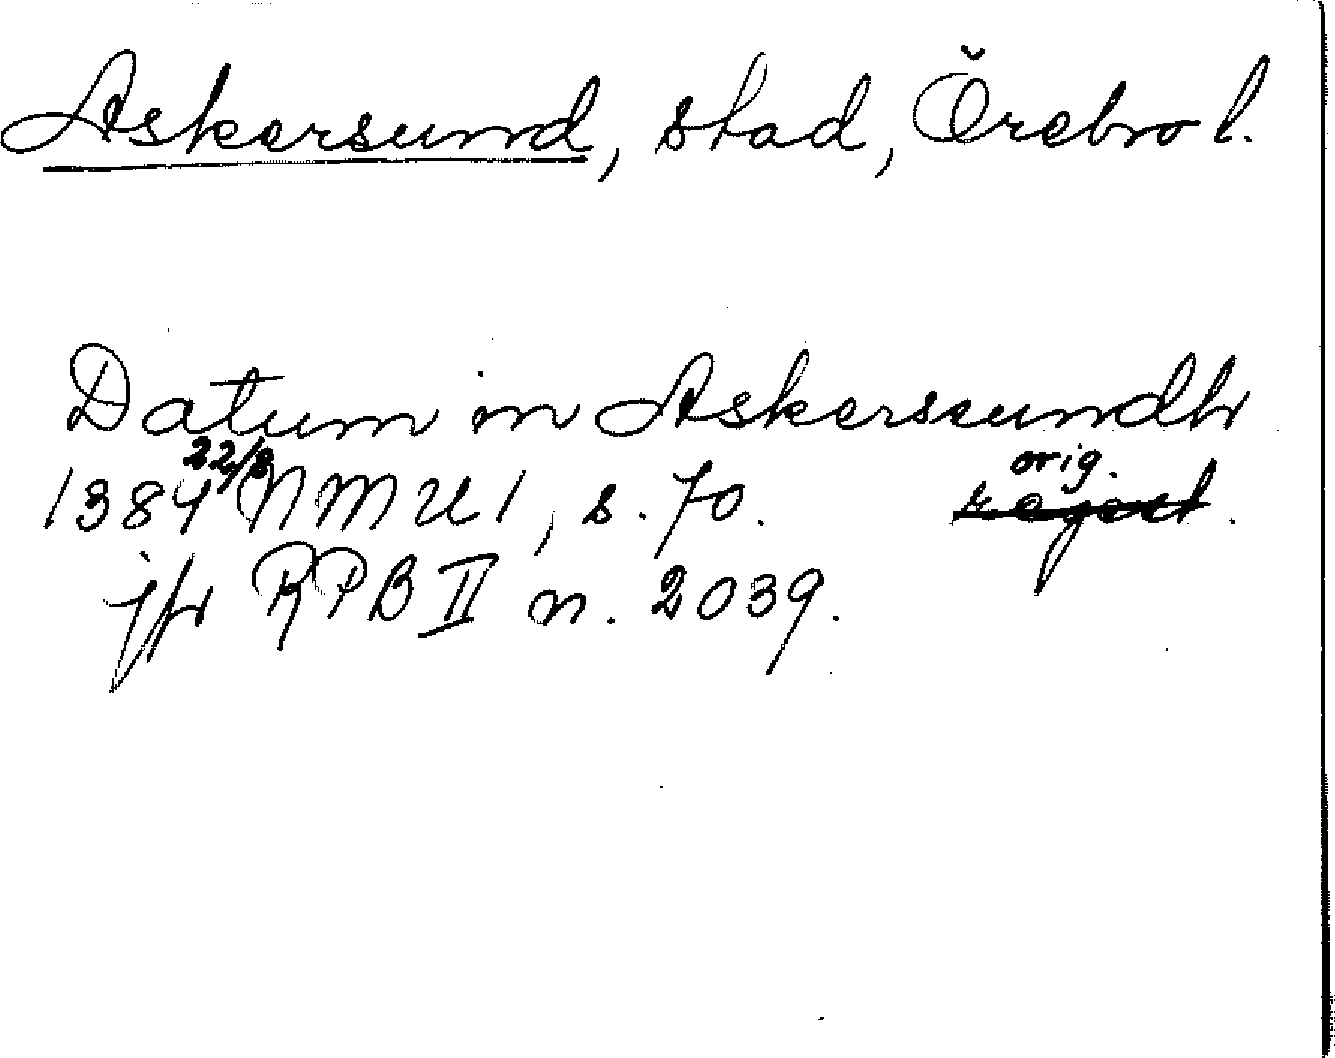 Askersund, stad, Örebro l.
Datum in Askerssundh
1384 22/8 NMU 1, s. 70. orig.
jfr RPB II n. 2039.